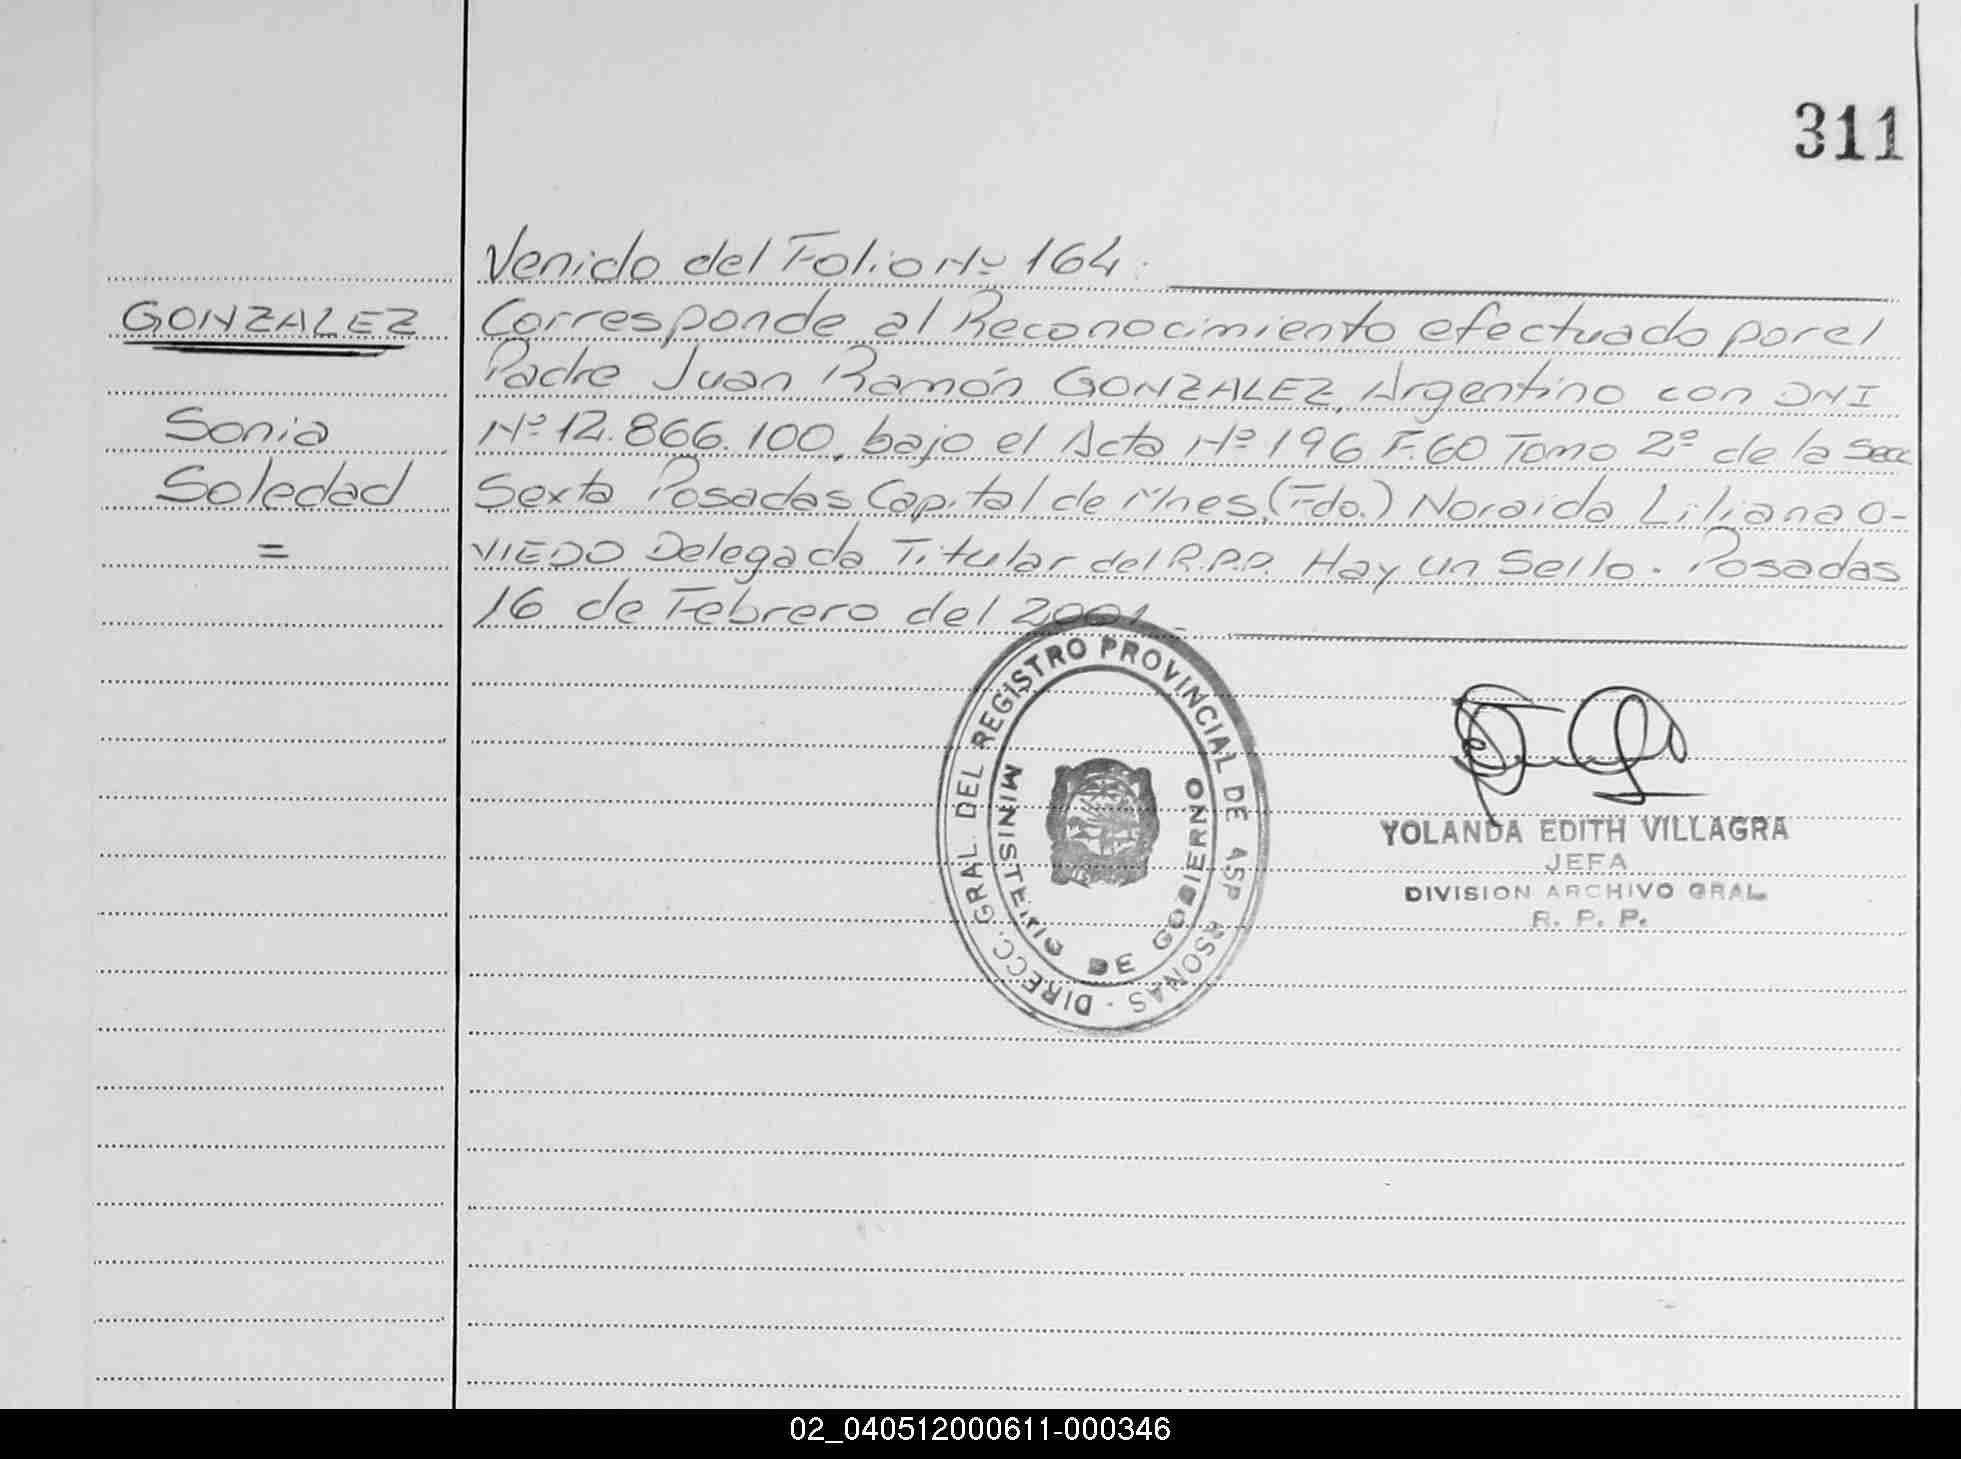 311
Venido del Folio Nº 164.
GONZALEZ
Corresponde al Reconocimiento efectuado por el
Padre Juan Ramón GONZALEZ, Argentino con DNI
Sonia
Nº 12.866.100, bajo el Acta Nº 196 F. 60 Tomo 2º de la Secc
Soledad
Sexta Posadas Capital de Mnes, (Fdo.) Noraida Liliana O-
=
VIEDO Delegada Titular del R.P.P. Hay un Sello. Posadas
16 de Febrero del 2001.-
DIRECC. GRAL. DEL REGISTRO PROVINCIAL DE
MINISTERIO DE GOBIERNO
YOLANDA EDITH VILLAGRA
JEFA
DIVISION ARCHIVO GRAL.
R. P. P.
02_040512000611-000346